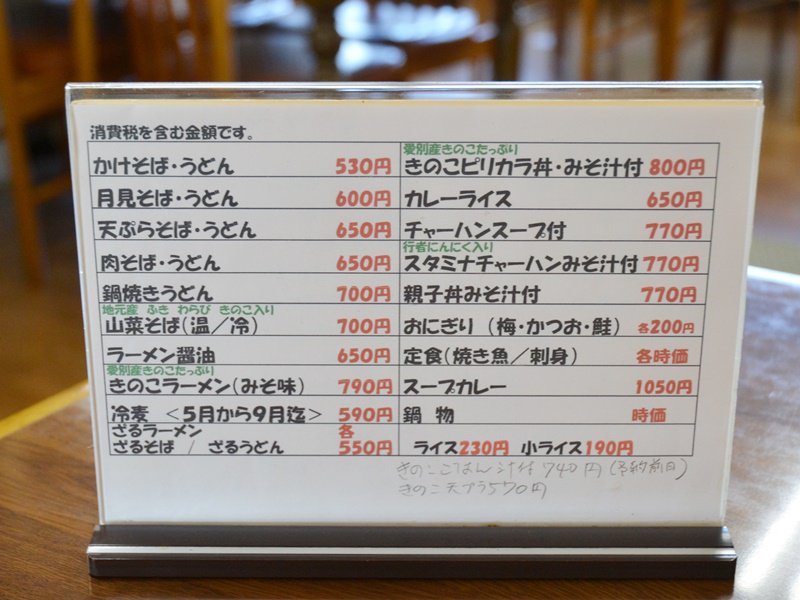 消費税を含む金額です。
かけそば・うどん 530円
月見そば・うどん 600円
天ぷらそば・うどん 650円
肉そば・うどん 650円
鍋焼きうどん 700円
地元産 ふき わらび きのこ入り
山菜そば(温／冷) 700円
ラーメン醤油 650円
愛別産きのこたっぷり
きのこラーメン(みそ味) 790円
冷麦 ＜5月から9月迄＞ 590円
ざるラーメン 各
ざるそば / ざるうどん 550円
愛別産きのこたっぷり
きのこピリカラ丼・みそ汁付 800円
カレーライス 650円
チャーハンスープ付 770円
行者にんにく入り
スタミナチャーハンみそ汁付 770円
親子丼みそ汁付 770円
おにぎり (梅・かつお・鮭) 各200円
定食(焼き魚／刺身) 各時価
スープカレー 1050円
鍋 物 時価
ライス230円 小ライス190円
きのこごはん汁付 740円 (予約前日)
きのこ天プラ570円